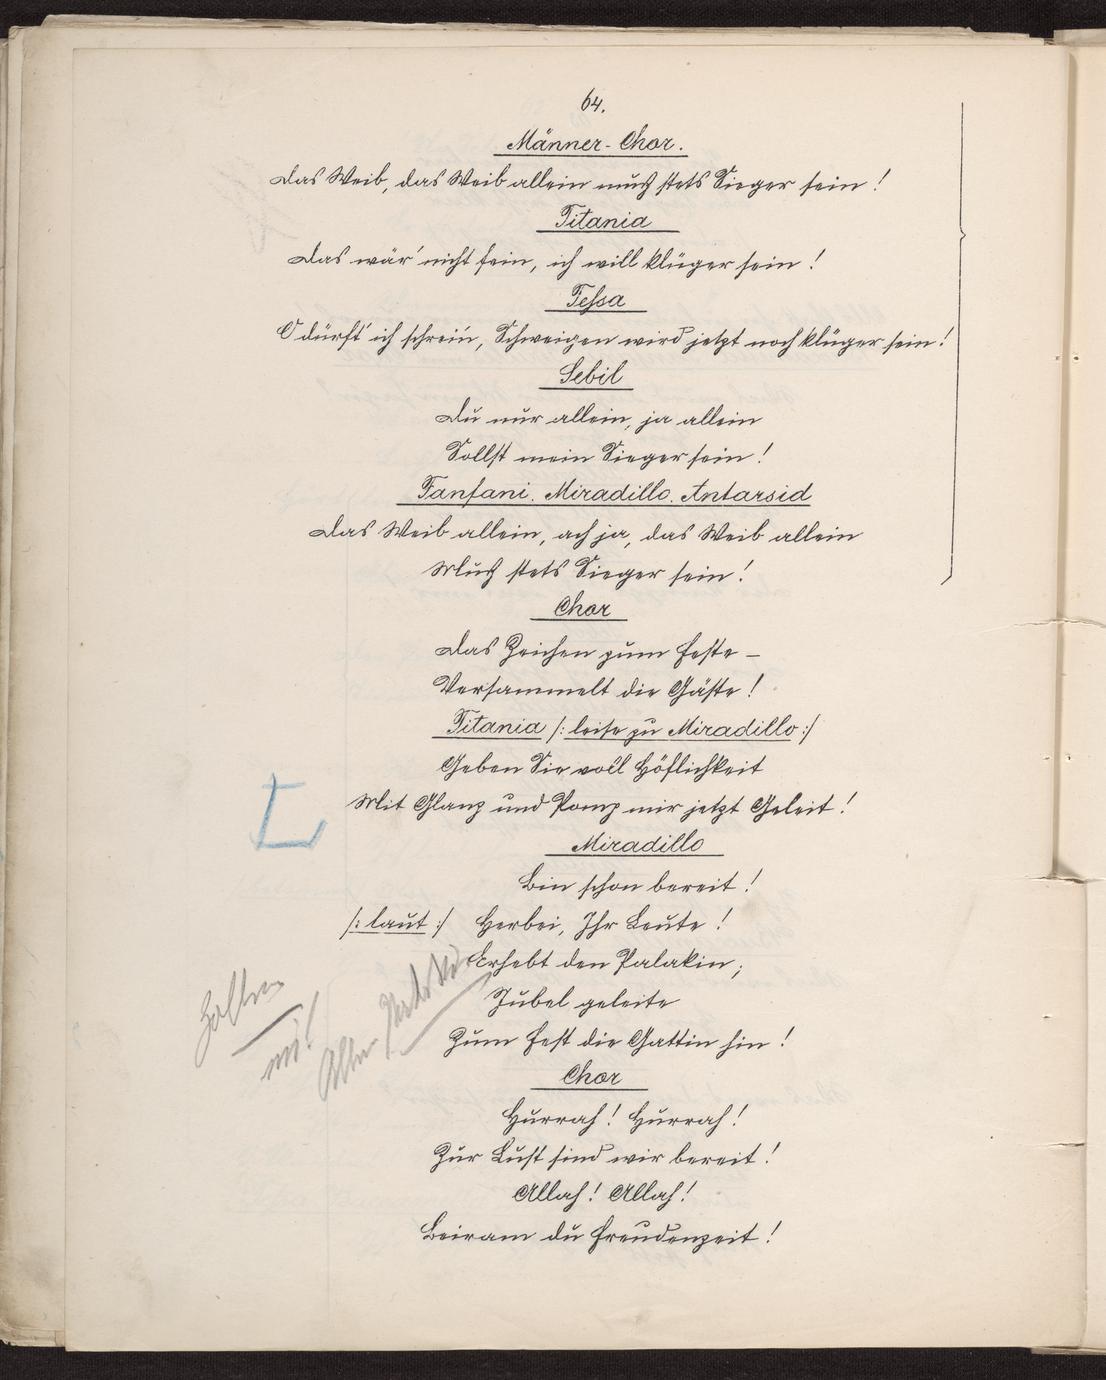 64.
Männer-Chor.
Das Weib, das Weib allein muß stets Sieger sein!
Titania
Das wär' nicht fein, ich will klüger sein!
Tessa
O dürft' ich schrei'n, Schweigen wird jetzt noch klüger sein!
Sebil
Du nur allein, ja allein
Sollst mein Sieger sein!
Fanfani. Miradillo. Antarsid
Das Weib allein, ach ja, das Weib allein
Muß stets Sieger sein!
Chor
Das Zeichen zum Feste –
Versammelt die Gäste!
Titania /: leise zu Miradillo :/
Geben Sie voll Höflichkeit
Mit Glanz und Pomp mir jetzt Geleit!
Miradillo
Bin schon bereit!
/: laut :/ Herbei, Ihr Leute!
Erhebt den Palakin;
Jubel geleite
Zum Fest die Gattin hin!
Chor
Hurrah! Hurrah!
Zur Lust sind wir bereit!
Allah! Allah!
Beiram du Freudenzeit!